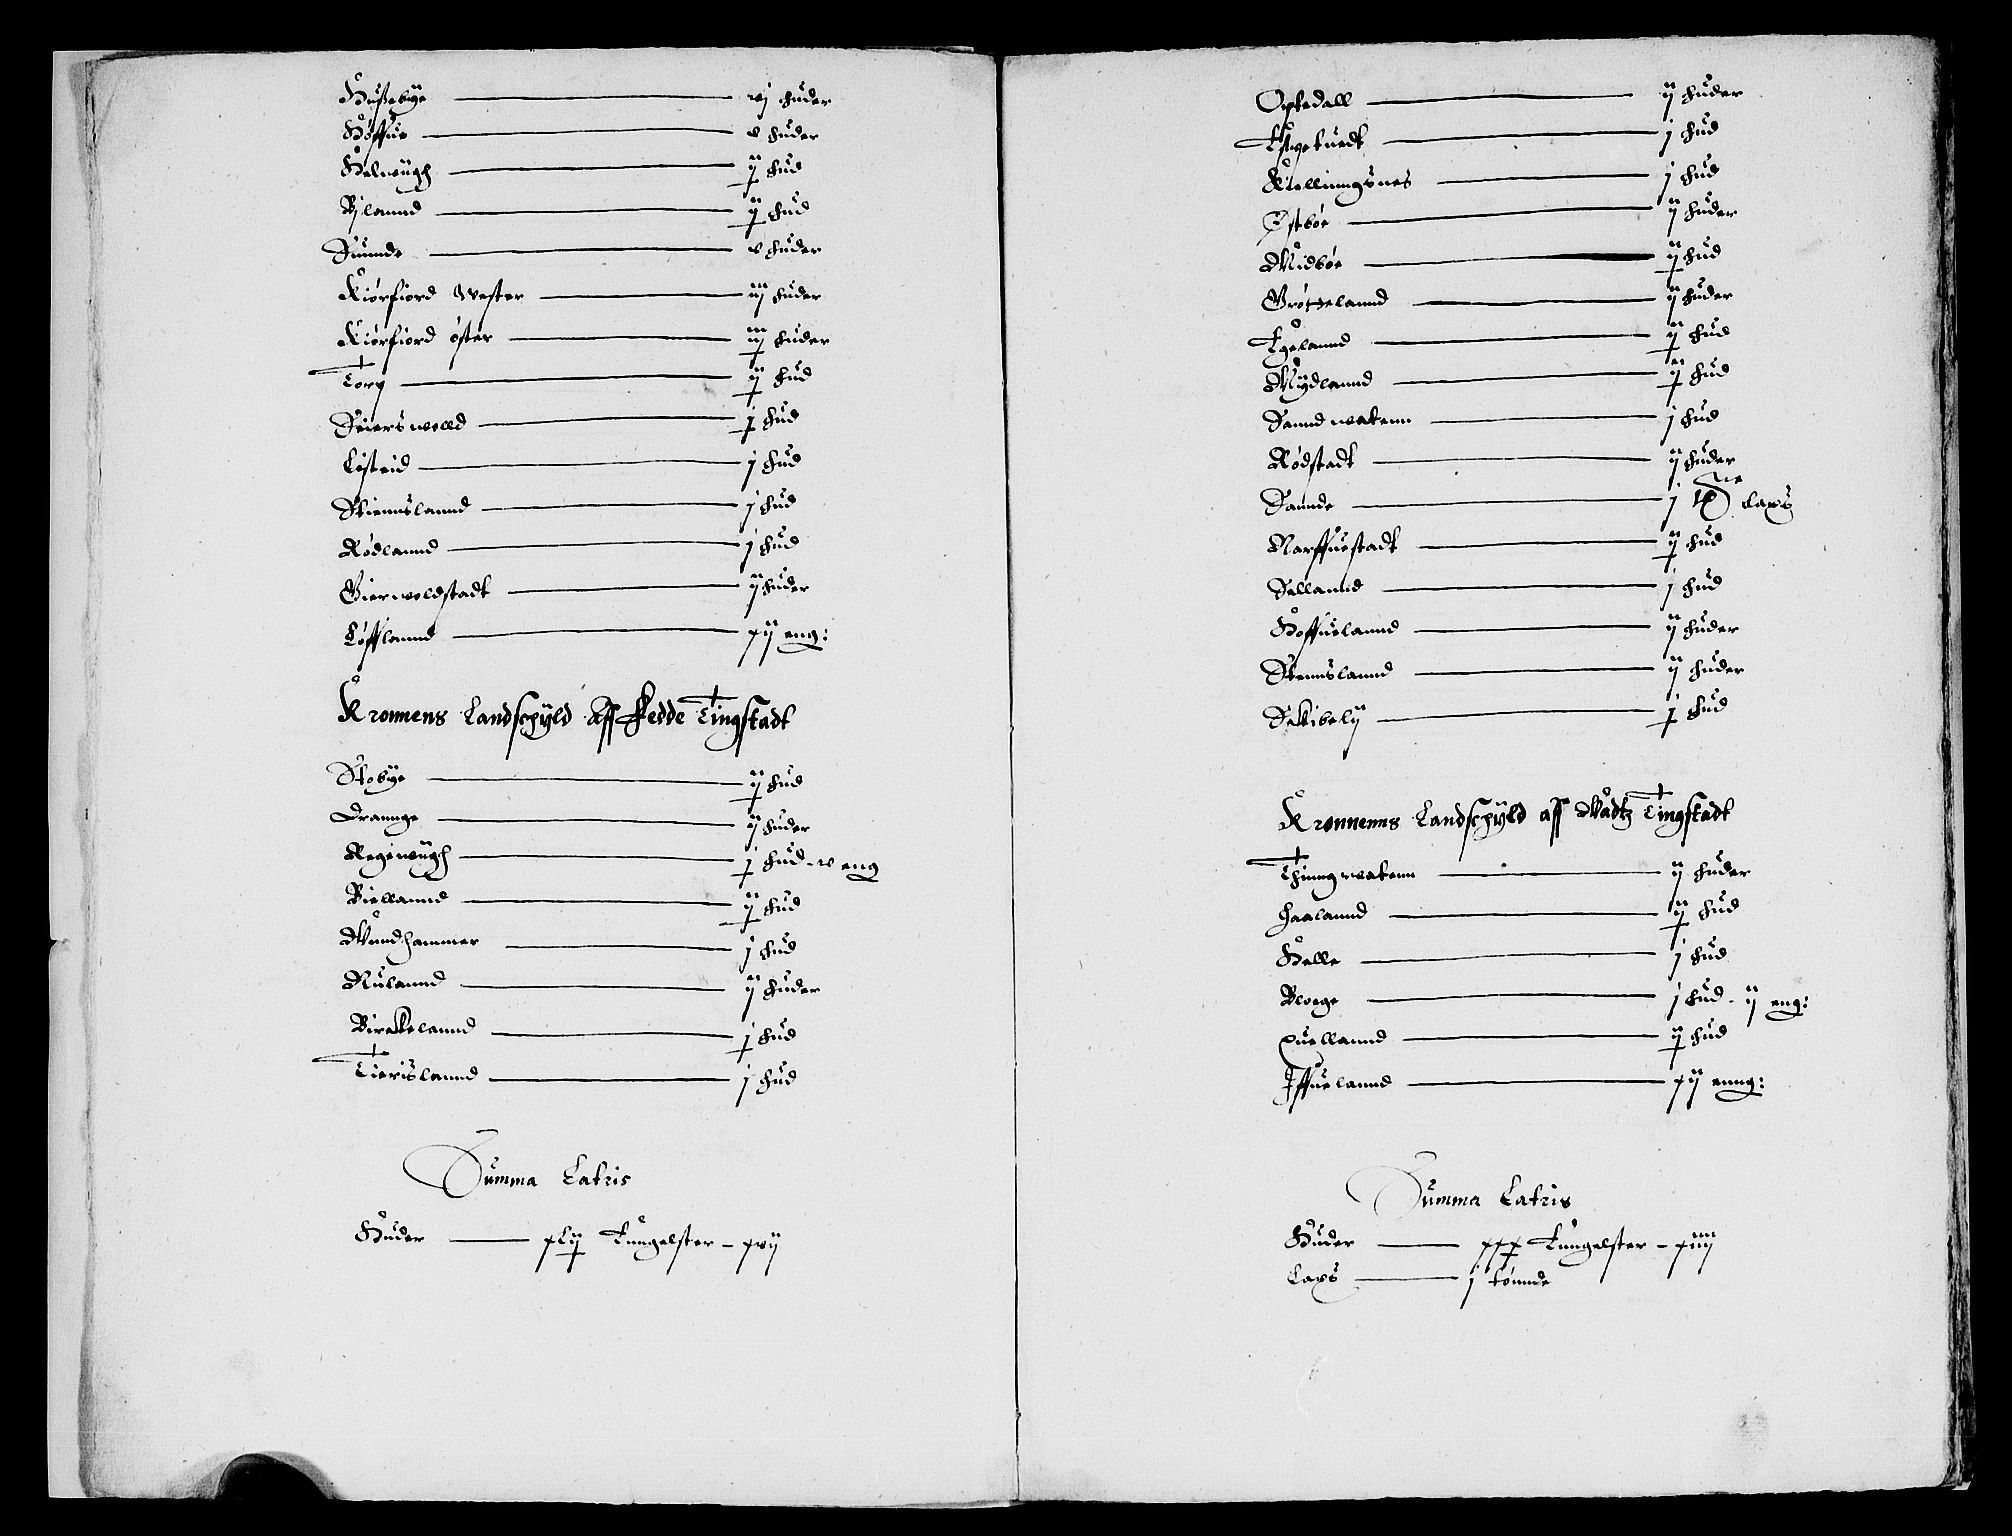 Hußebye — vj huder
Høffue — v huder
Heluigh — ij hud
Bjlannd — ij hud
Sunnde — v huder
Kiørfiord Wester — iij huder
Kiørfiord øster — iij huder
Torp — ij hud
Seierswolld — j hud
Listeid — j hud
Stiennslannd — j hud
Rødlannd — j hud
Gierwoldstadt — ij huder
Løfflannd — xij eng:
Kronnens Landschyld Aff Fedde Tingstadt
Stobye — ij hud
Drannge — ij huder
Regeuigh — j hud - v eng
Biellannd — ij hud
Wundhammer — j hud
Rulannd — ij huder
Birckelannd — j hud
Tierislannd — j hud
Summa Latris
Huder — xLij Lungelster - xvij
Optedall — ij huder
Espetuedt — j hud
Kiellinngsnes — j hud
Østbøe — ij huder
Midbøe — ij hud
Grøtzelannd — ij huder
Egelannd — ij hud
Mydlannd — ij hud
Sanndwatenn — j hud
Rødstadt — ij huder
Sannde — j tønde Laxs
Narffuestadt — ij hud
Sellannd — j hud
Hoffuelannd — ij huder
Stennslannd — ij huder
Sckibelij — j hud
Kronnenns Landschyld aff Wadtz Tingstadt
Thinngwatenn — ij huder
Haalannd — ij hud
Helle — j hud
Bloege — j hud - ij eng:
Quellannd — ij hud
Iffuelannd — xij enng:
Summa Latris
Huder — xxx Lungelster - xiiij
Laxs — j tønnde